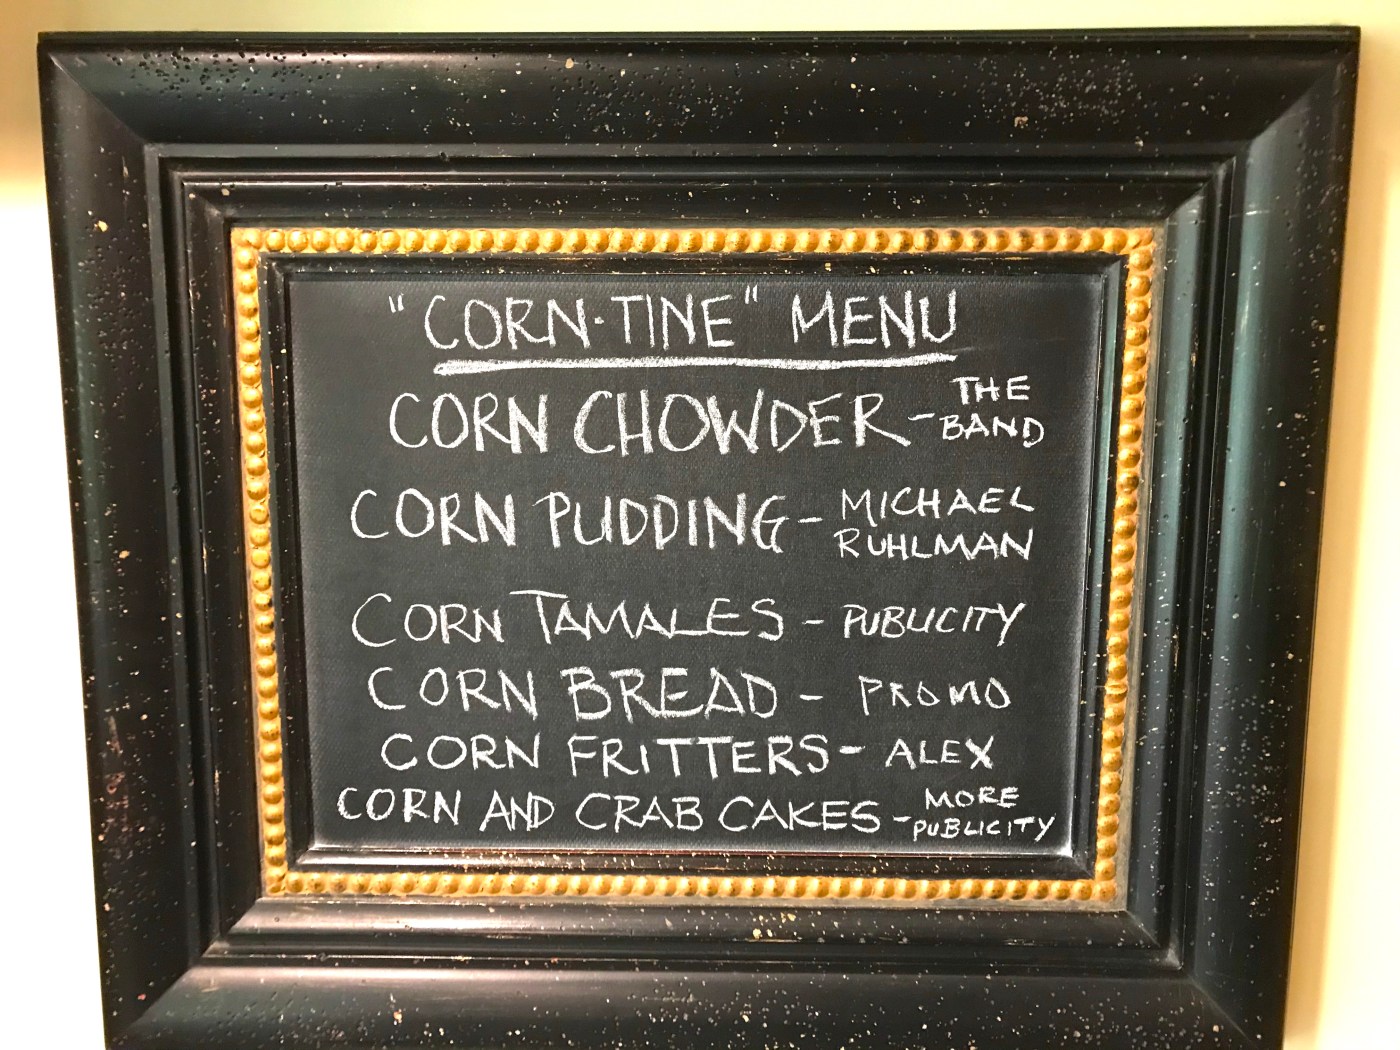 "CORN-TINE" MENU
CORN CHOWDER - THE BAND
CORN PUDDING - MICHAEL RUHLMAN
CORN TAMALES - PUBLICITY
CORN BREAD - PROMO
CORN FRITTERS - ALEX
CORN AND CRAB CAKES - MORE PUBLICITY